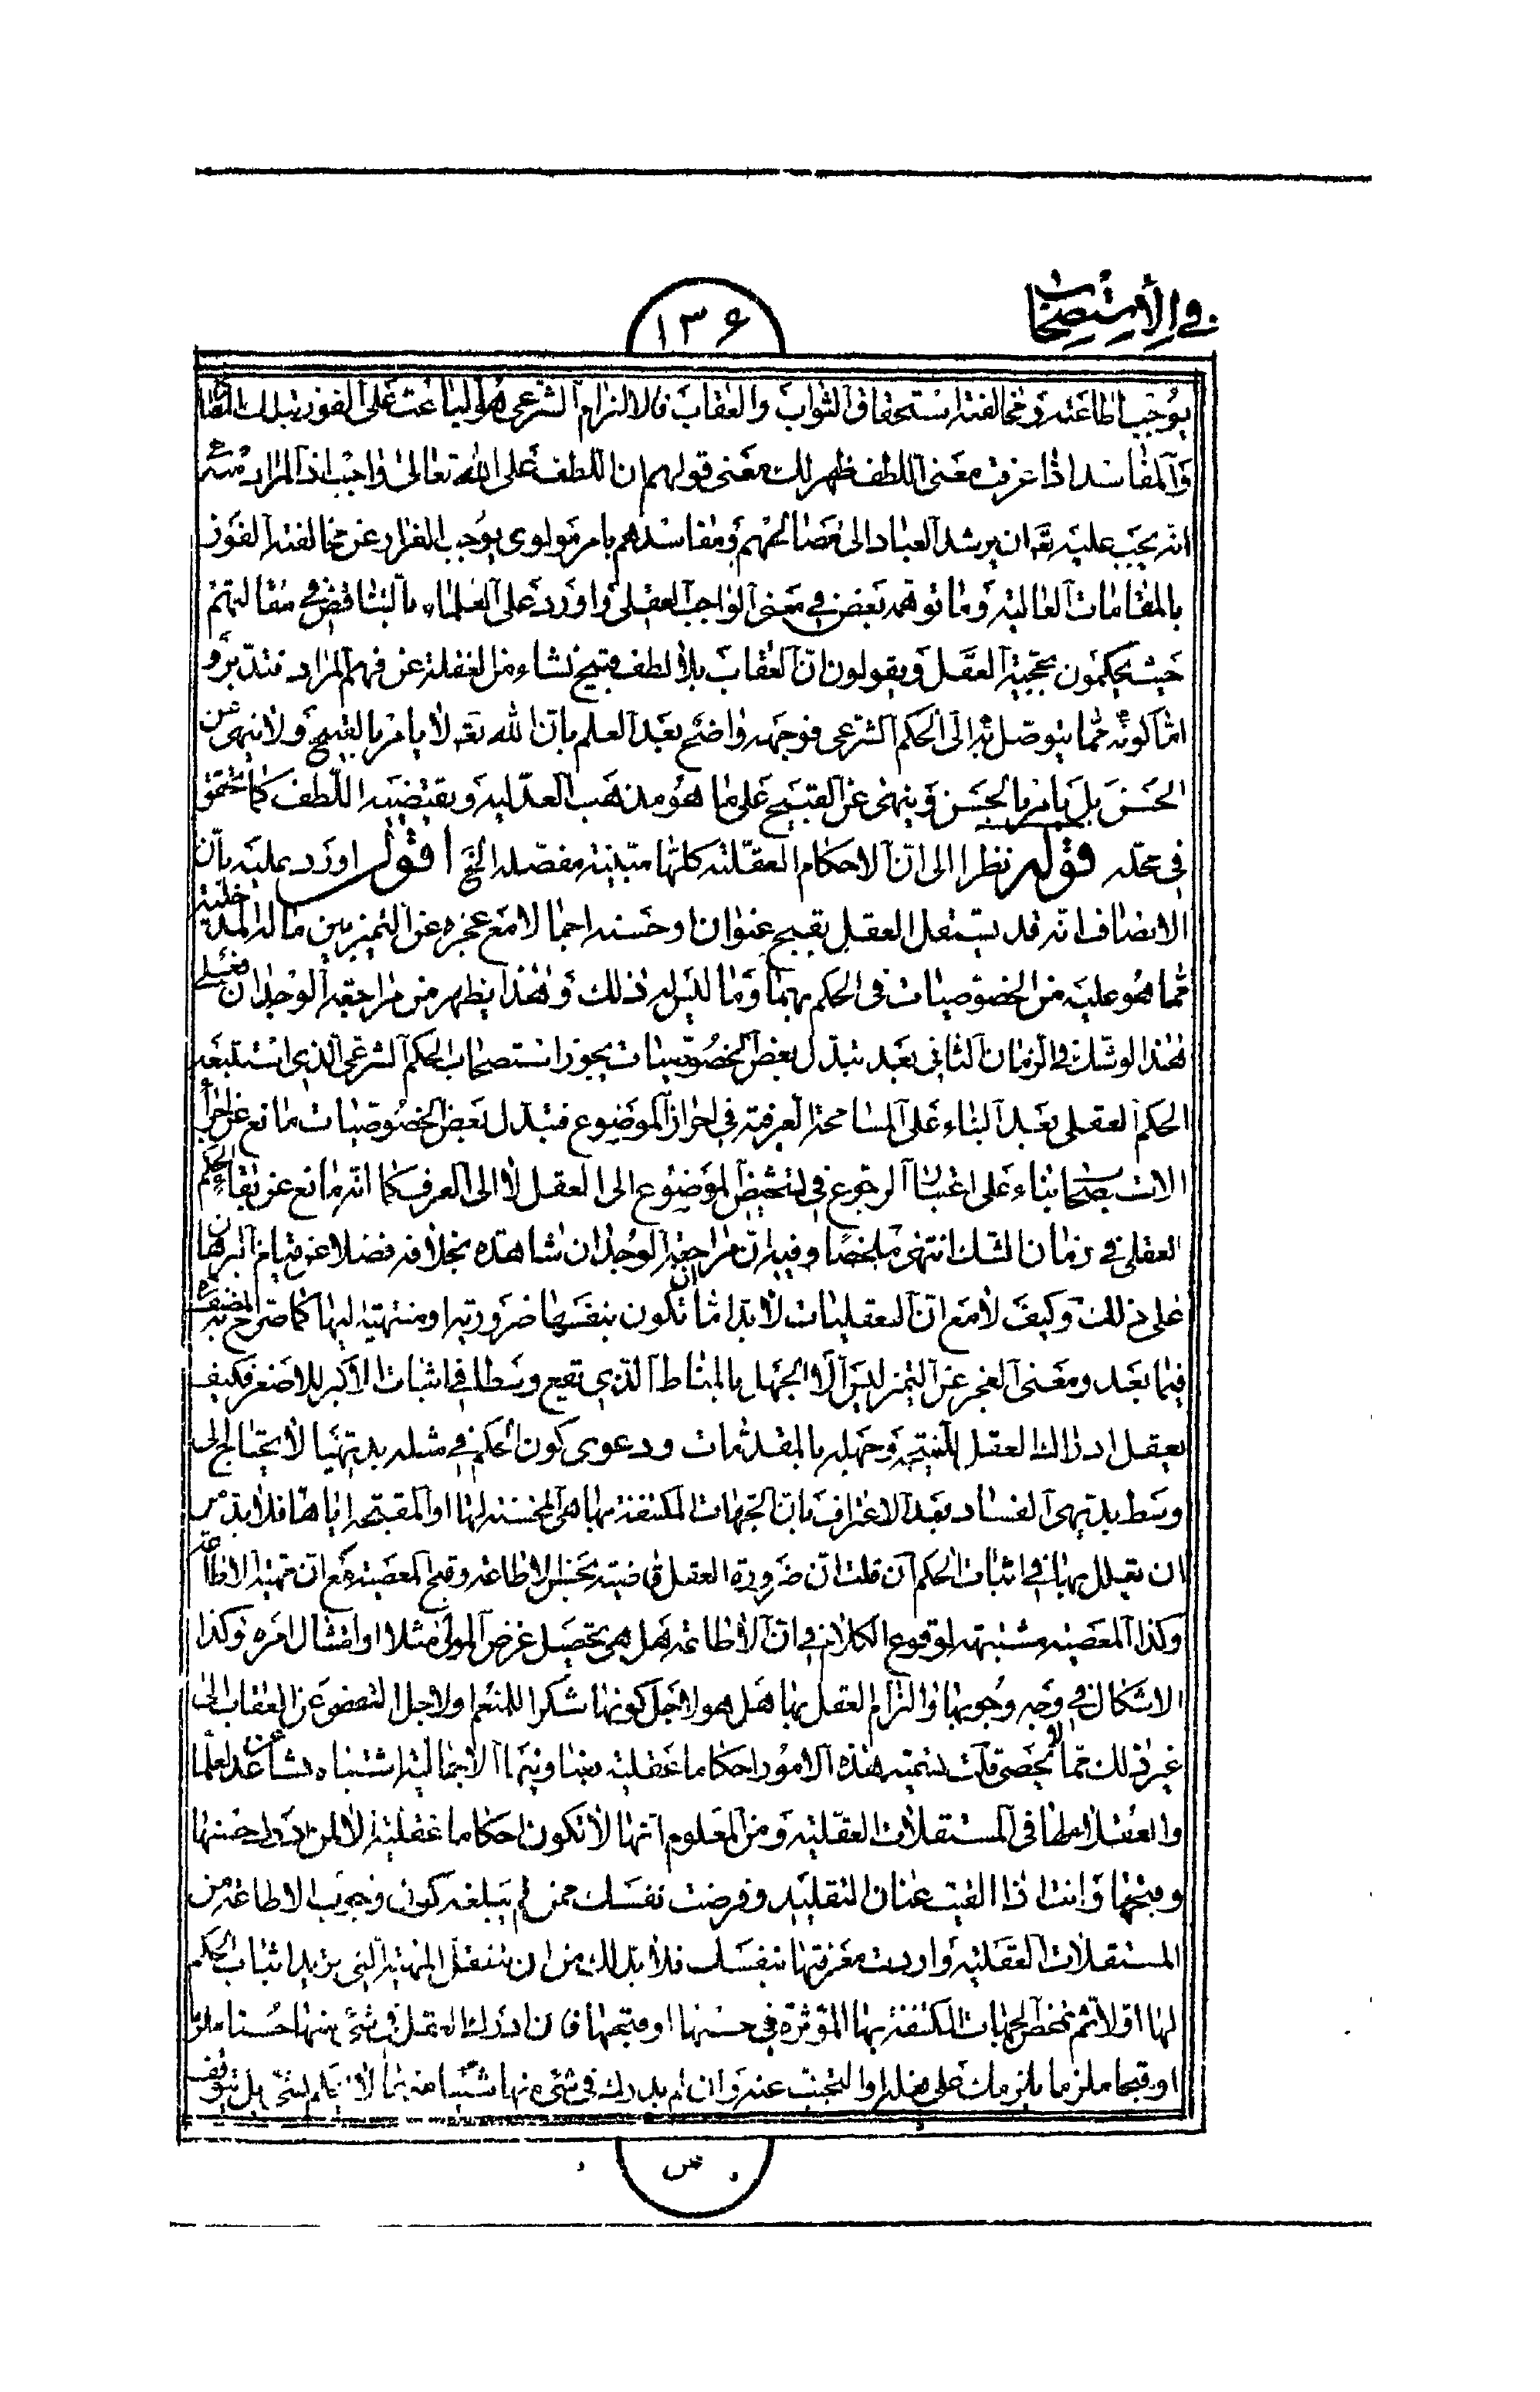 في الاستصحاب
١٣۶
يوجب اطاعته ومخالفته استحقاق الثواب والعقاب فالالزام الشرعى هو الباعث على الفوز بتلك المصالح
والمفاسد اذا عرفت معنى اللطف ظهر لك معنى قولهم ان اللطف على الله تعالى واجب اذ المراد منه
انه يجب عليه تعه ان يرشد العباد الى مصالحهم ومفاسدهم بامر مولوى يوجب الفرار عن مخالفته الفوز
بالمقامات العالية وما توهمه بعض في معنى الواجب العقلى واورد على العلماء بالتناقض في مقالتهم
حيث يحكمون بحجية العقل ويقولون ان العقاب بلا لطف قبيح نشاء من الغفلة عن فهم المراد فتدبر و
امّا كونه ممّا يتوصل به الى الحكم الشرعى فوجهه واضح بعد العلم بان الله تعه لا يامر بالقبيح ولا ينهى عن
الحسن بل يامر بالحسن وينهى عن القبيح على ما هو مذهب العدلية ويقتضيه اللطف كما تحقق
في محله قوله نظرا الى انّ الاحكام العقلية كلها متبينة مفصلة الخ اقول اورد عليه بانّ
الانصاف انه قد يستقل العقل بقبيح عنوان او حسنه اجمالا مع عجزه عن التميز بين ما له المدخلية
ممّا هو عليه من الخصوصيات في الحكم بهما وما ليس له ذلك وهذا يظهر من مراجعة الوجدان فعلى
هذا لو شك في الزمان الثاني بعد تبدل بعض الخصوصيات يجوز استصحاب الحكم الشرعى الذي استتبعه
الحكم العقلى بعد البناء على المسامحة العرفية في احراز الموضوع فتبدل بعض الخصوصيات مانع عن اجراء
الاستصحاب بناء على اعتبار الرجوع في تشخيص الموضوع الى العقل لا الى العرف كما انه مانع عن بقاء الحكم
العقلى في زمان الشك انتهى ملخصًا وفيه ان مراجعة الوجدان شاهدة بخلافه فضلا عن قيام البرهان
على ذلك وكيف لا مع انّ العقليات لا بد امّا ان تكون بنفسها ضرورية او منتهية اليها كما صرح به المصنف ره
فيما بعد ومعنى العجز عن التميز ليس الّا الجهل بالمناط الذي يقع وسطا في اثبات الاكبر للاصغر فكيف
يعقل ادراك العقل للنتيجة وجهله بالمقدمات ودعوى كون الحكم في مثله بديهيا لا يحتاج الى
وسط بديهى الفساد بعد الاعتراف بان الجهات المكتنفة بها هى المحسنة لها او المقبحة اياها فلا بد من
ان يعلل بها في اثبات الحكم ان قلت ان ضرورة العقل قاضية بحسن الاطاعة وقبح المعصية مع ان مهيّة الاطاعة
وكذا المعصية مشتبهة لوقوع الكلام في ان الاطاعة هل هى تحصيل غرض المولى مثلا او امتثال امره وكذا
الاشكال في وجه وجوبها والزام العقل بها هل هو لاجل كونها شكرا للمنعم او لاجل التفصى عن العقاب الى
غير ذلك ممّا لا يحصى قلت تسمية هذه الامور احكاما عقلية بعناوينها الاجمالية اشتباه نشأ عن عد العلماء
والعقلاء لها في المستقلات العقلية ومن المعلوم انها لا تكون احكاما عقلية الّا لمن ادرك حسنها
وقبحها وانت اذا القيت عنان التقليد وفرضت نفسك ممن لم يبلغه كون وجوب الاطاعة من
المستقلات العقلية واردت معرفتها بنفسك فلا بد لك من ان تتعقل المهية التي تريد اثبات الحكم
لها اوّلا ثم تفحص الجهات المكتنفة بها المؤثرة في حسنها او قبحها فان ادرك العقل في شئ منها حسنا ملزما
او قبحا ملزما يلزمك على فعله او التجنب عنه وان لم يدرك في شئ منها شيئا منهما لا يحكم بشئ بل يتوقف